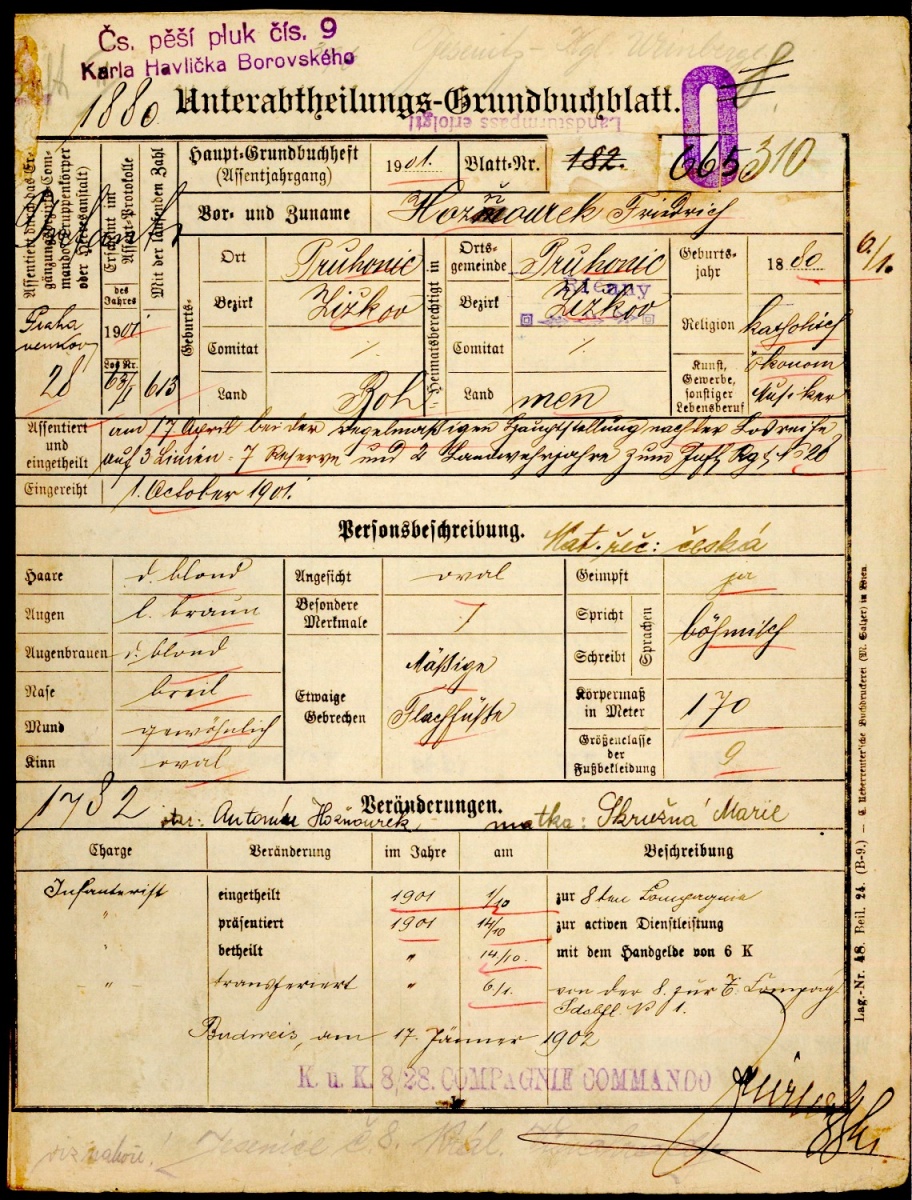 Čs. pěší pluk čís. 9
Karla Havlíčka Borovského
1880
Unterabtheilungs-Grundbuchblatt.
Landsturmpass erfolgt!
0
8
Assentiert durch das Ergänzungsbezirks-Commando (Truppenkörper oder Heeresanstalt)
Erscheint im Assent-Protokolle
Mit der laufenden Zahl
Haupt-Grundbuchheft
(Assentjahrgang)
1901.
Blatt-Nr.
182.
665
310
Vor- und Zuname
Hoznourek Friedrich
ň
des Jahres
1901
Los Nr.
63/1
613
Praha
venkov
28
Geburts-
Ort
Pruhonic
Bezirk
Zizkov
Comitat
Land
Böh
Heimatsberechtigt in
Ortsgemeinde
Pruhonic
Bezirk
Zizkov
Comitat
Land
men
Geburtsjahr
1880
6/1.
Religion
katholisch
Kunst, Gewerbe, sonstiger Lebensberuf
ökonom
Musiker
Assentiert und eingetheilt
am 17 April bei der regelmäßigen Hauptstellung nach der Losreihe
auf 3 Linien- 7 Reserve und 2 Landwehrjahre zum Inft. Rgt. No 28
Eingereiht
1. October 1901.
Personsbeschreibung.
Mat. řeč: česká
Haare
d. blond
Augen
l. braun
Augenbrauen
d. blond
Nase
breit
Mund
gewöhnlich
Kinn
oval
Angesicht
oval
Besondere Merkmale
Etwaige Gebrechen
Mäßige
Flachfüße
Geimpft
ja
Spricht
Schreibt
Sprachen
böhmisch
Körpermaß in Meter
170
Größenclasse der Fußbekleidung
9
1782
Veränderungen.
otec: Antonín Hožnourek
matka: Skružná Marie
Charge
Veränderung
im Jahre
am
Beschreibung
Infanterist
eingetheilt
1901
1/10
zur 8ten Compagnie
"
präsentiert
1901
14/10
zur activen Dienstleistung
"
betheilt
"
14/10.
mit dem Handgelde von 6 K
"
transferiert
"
6/1.
von der 8. zur 7. Compag
Budweis, am 17. Jänner 1902
K. u. K. 8/28. COMPAGNIE COMMANDO
viz nahoře!
Jesenice č. 8. Král. Vinohrady
Lag.-Nr. 48. Beil. 24. (B-9.) —
Buchdruckerei (M. Salzer) in Wien.